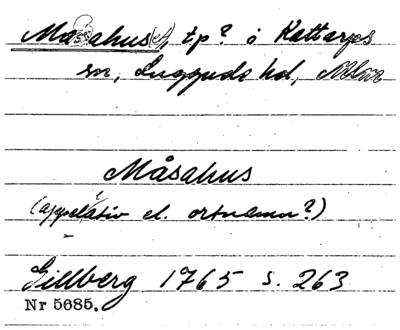 Måsahus(et), tp? i Kattarps
sn, Luggude hd, Mlm
Måsahus
(appellativ el. ortnamn?)
Gillberg 1765 s. 263
Nr 5685.